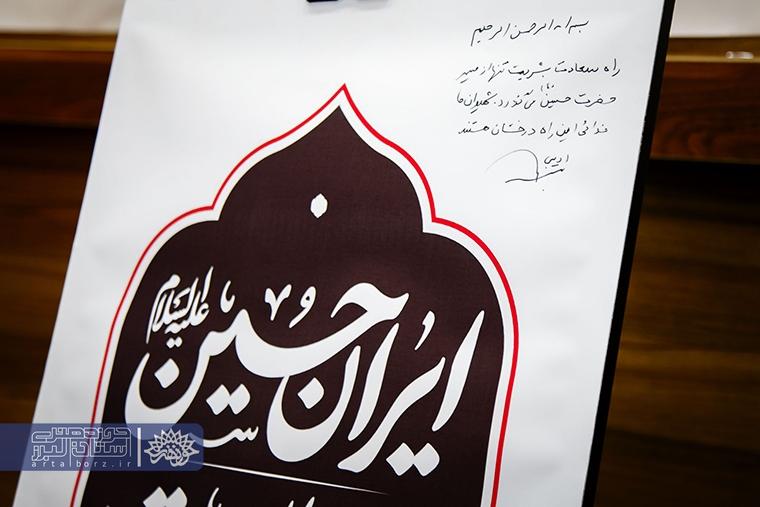 بسم الله الرحمن الرحیم
راه سعادت بشریت تنها از مسیر
حضرت حسین (ع) می‌گذرد. شهیدان ما
فدائی این راه درخشان هستند
ایران حسین
علیه‌السلام
حوزه هنری
استان البرز
artalborz.ir